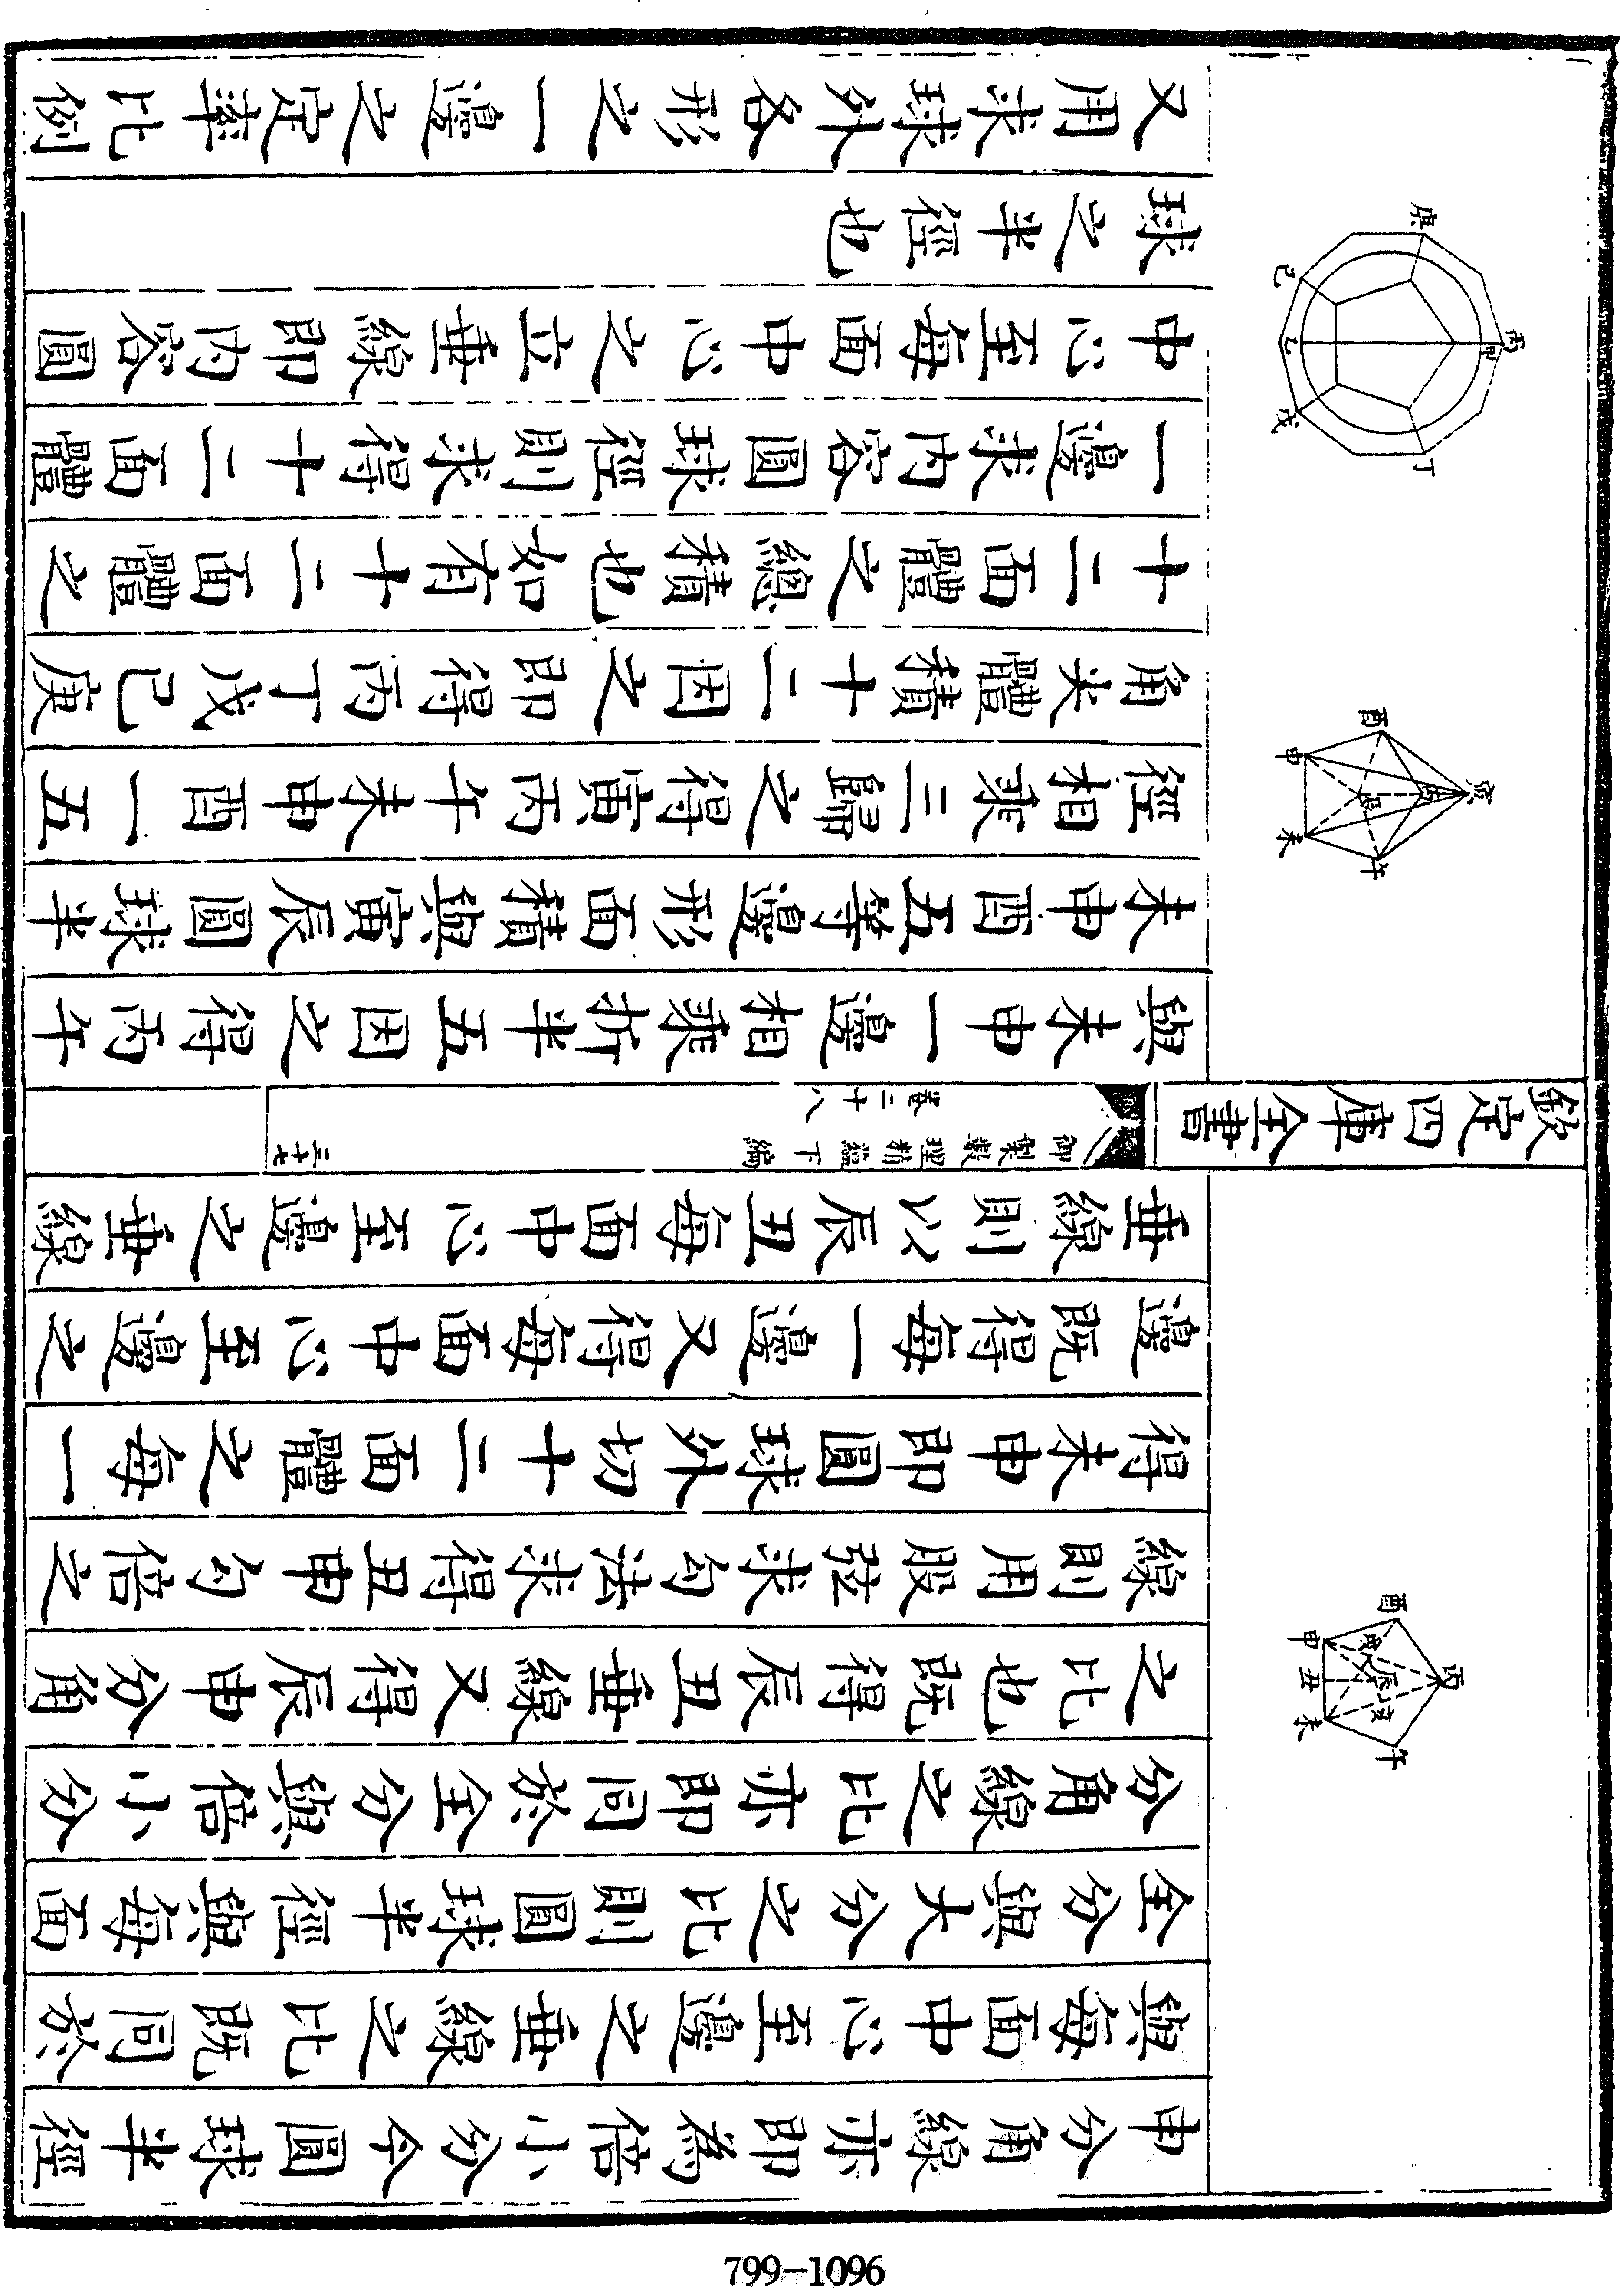 申分角線亦即為倍小分今圓球半徑
與每面中心至邊之垂線之比既同於
全分與大分之比則圓球半徑與每面
分角線之比亦即同於全分與倍小分
之比也既得辰丑垂線又得辰申分角
線則用股弦求勾法求得丑申勾倍之
得未申即圓球外切十二面體之每一
邊既得每一邊又得每面中心至邊之
垂線則以辰丑每面中心至邊之垂線
丙
酉
申
丑
未
午
戌
辰
亥
欽定四庫全書
御製數理精蘊下編
卷二十八
三十七
與未申一邊相乘折半五因之得丙午
未申酉五等邊形面積與寅辰圓球半
徑相乘三歸之得寅丙午未申酉一五
角尖體積十二因之即得丙丁戊己庚
十二面體之總積也如有十二面體之
一邊求內容圓球徑則求得十二面體
中心至每面中心之立垂線即內容圓
球之半徑也
又用求球外各形之一邊之定率比例
寅
丙
辰
酉
申
未
午
丙
甲
庚
己
乙
戊
丁
799-1096